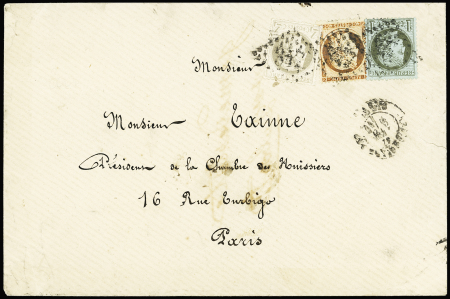 Monsieur
Monsieur Exinne
Président de la Chambre des Huissiers
16 Rue Turbigo
Paris